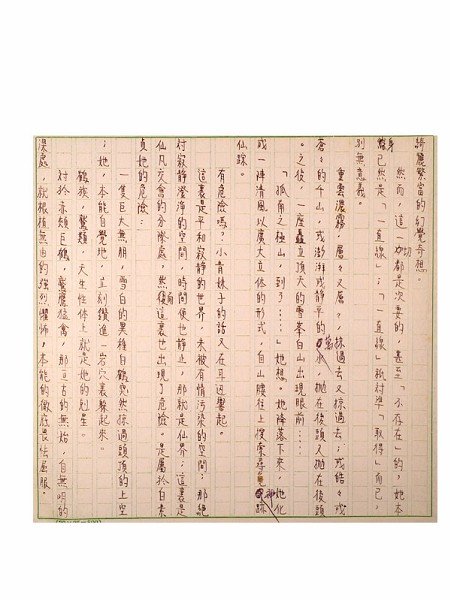 綺麗繁富的幻覺奇想。
然而,這一切都是次要的,甚至「小存在」的,她本
身已然是「一直線」;「一直線」祇對準「取得」而已,
別無意義。
重雲濃霧,層々又層々,抹過去又掠過去;或結々或
蒼々的千山,或澎湃或靜平的萬水,拋在後頭又拋在後頭
之後,一座矗立頂天的雪峯白山出現眼前……
「孤角之極山,到了……」她想。她降落下來,她化
或一陣清風以廣大立体的形式,自山腰往上搜索尋覓神踪
仙踩。
有危險嗎?小青妹子的話又在耳邊響起。
這裏是平和寂靜的世界,未被有情污染的空間;那絕
對寂靜澄淨的空間,時間便也靜止,那就是仙界;這裏是
仙凡交會的分際處,然後這裏也出現了危險。是屬於白素
貞她的危險:
一隻巨大無朋,雪白的異種白鶴突然掠過頭頂的上空
;她,本能自覺地,立刻鑽進一岩穴裏躲起來。
鶴族,鷲類,天生性体上就是她的剋星。
對於赤頰巨鶴,鷲鷹猛禽,那亘古的無始,自無明的
深處,就根植無由的強烈懼怖,本能的徹底畏怯屈服。